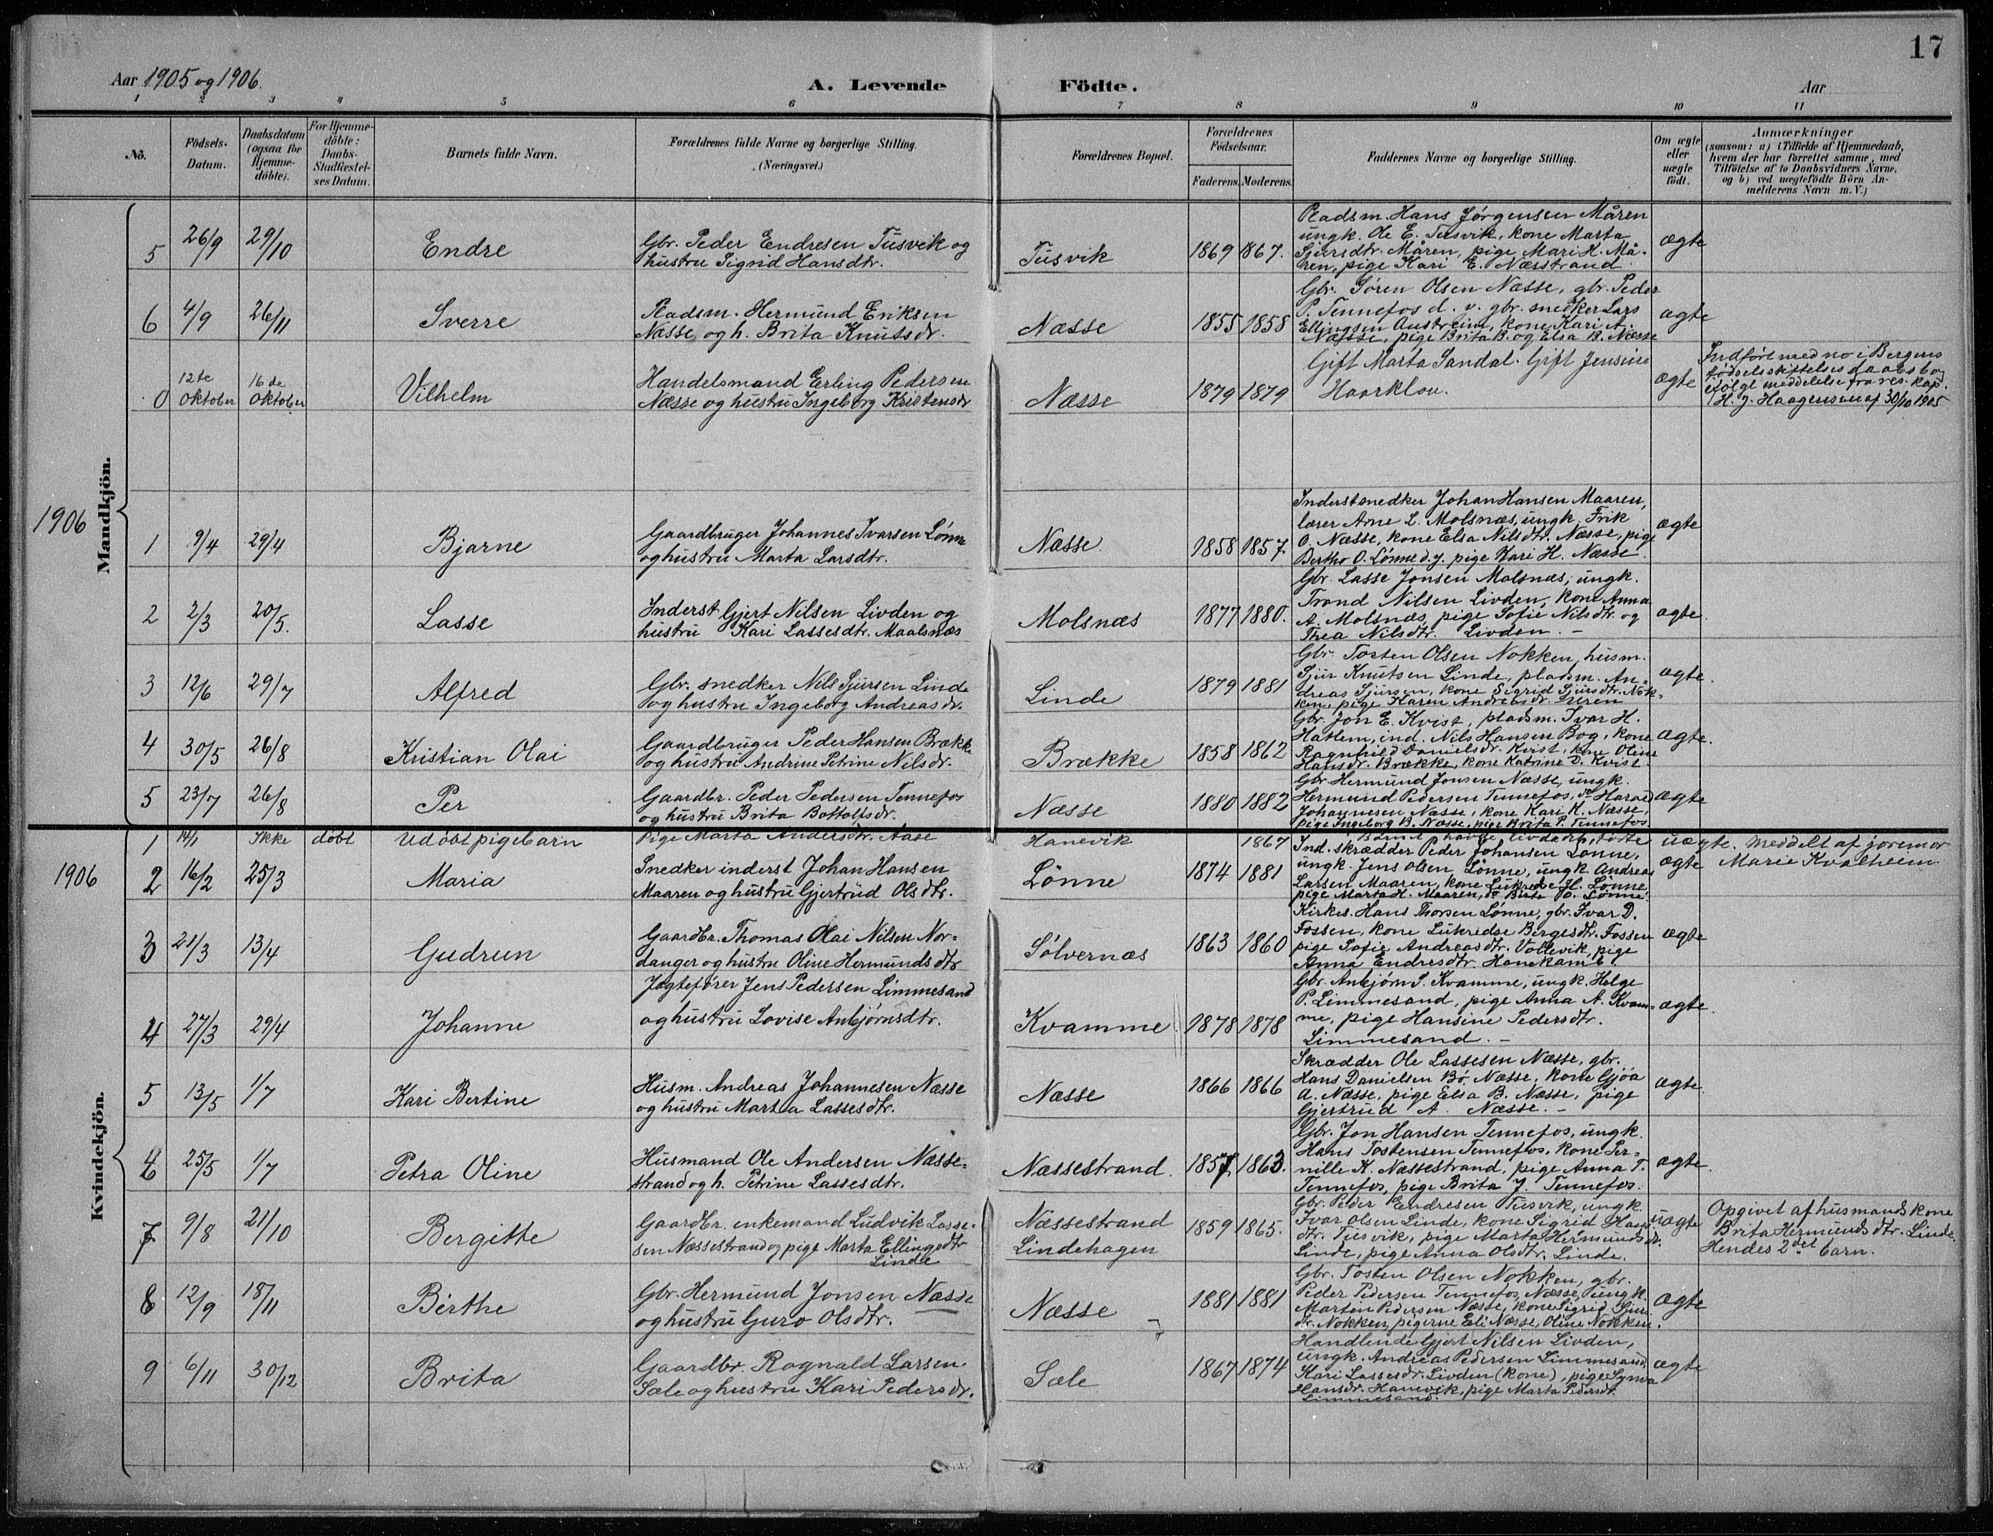 17
Aar 1905 og 1906.
A. Levende Födte.
Aar
1 2 3 4 5 6 7 8 9 10 11
No.
Födsels-Datum.
Daabsdatum (ogsaa for Hjemme-döbte).
For Hjemme-döbte: Daabs-Stadfæstel-ses Datum.
Barnets fulde Navn.
Forældrenes fulde Navne og borgerlige Stilling. (Næringsvei.)
Forældrenes Bopæl.
Forældrenes Födselsaar.
Faderens. Moderens.
Faddernes Navne og borgerlige Stilling.
Om ægte eller uægte födt.
Anmærkninger
(saasom: a) i Tilfælde af Hjemmedaab,
hvem der har forrettet samme, med
Tilföielse af to Daabsvidners Navne.
og b) ved uægtefödte Börn An-
melderens Navn m. V.)
Mandkjön.
5 26/9 29/10 Endre
Gbr. Peder Endresen Tusvik og
hustru Sigrid Hansdtr.
Tusvik 1869 1867.
Pladsm. Hans Jørgensen Måren
ungk. Ole E. Tusvik, kone Marta
Sjursdtr. Måren, pige Mari H. Må-
ren, pige Kari E. Næsstrand.
ægte
6 4/9 26/11 Sverre
Pladsm. Hermund Eriksen
Næsse, og h. Brita Knutsdr.
Næsse 1855 1858
Gbr. Søren Olsen Næsse, gbr. Peder
P. Tennefos d. y. gbr. snedker Lars
Ellingsen Austreim, kone Kari A.
Næsse, pige Brita B. og Elsa B. Næsse
ægte
0 12te Oktober 16de Oktober Vilhelm
Handelsmand Erling Pedersen
Næsse og hustru Ingeborg Kristensdr
Næsse 1879 1879
Gift Marta Sandal. Gift Jensine
Haarklou.
ægte
Indført med no i Bergens
fødselsstiftelses daabsbog
ifølge meddelelse fra res. kap.
H. J. Haagensen af 30/10 1905
1906
1 9/4 29/4 Bjarne
Gaardbruger Johannes Ivarsen Lønne
og hustru Marta Larsdtr.
Næsse. 1858 1857.
Inderst snedker Johan Hansen Maaren,
lærer Arne L. Molsnæs, ungk. Erik
O. Næsse, kone Elsa Nilsdtr. Næsse, pige
Bertho O. Lønne d. y. pige Kari H. Næsse.
ægte
2 2/3 20/5. Lasse
Inderst Gjert Nilsen Livden og
hustru Kari Lassesdtr. Maalsnæs
Molsnæs 1877 1880.
Gbr. Lasse Jonsen Molsnæs, ungk.
Trond Nilsen Livden, kone Anna
A. Molsnæs, pige Sofie Nilsdtr. og
Thea Nilsdtr. Livden. -
ægte.
3 12/6 29/7 Alfred
Gbr. snedker Nils Sjursen Linde
og hustru Ingeborg Andreasdr.
Linde 1879 1881
Gbr. Tosten Olsen Nokken, husm.
Sjur Knutsen Linde, pladsm. An-
dreas Sjursen, kone Sigrid Sjursdtr. Nok-
ken, pige Karen Andreasdr. Duren
ægte.
4 30/5 26/8 Kristian Olai
Gaardbruger Peder Hansen Brække
og hustru Andrine Petrine Nilsdr.
Brække 1858 1862
Gbr. Jon E. Kvist, pladsm. Ivar H.
Hatlem, ind. Nils Hansen Bog, kone
Ragnhild Danielsdr. Kvist, kone Oline
Hansdr. Brække, kone Katrine D. Kvist.
ægte.
5 23/7 26/8 Per
Gaardbr. Peder Pedersen Tennefos
og hustru Brita Bottolfsdr.
Næsse 1880 1882
Gbr. Hermund Jonsen Næsse, ungk.
Hermund Pedersen Tennefos, do Harald
Johannesen Næsse, kone Kari K. Næsse,
pige Ingeborg B. Næsse, pige Brita P. Tennefos
ægte
Kvindekjön.
1906
1 14/1 Ikke døbt Udøbt pigebarn
Pige Marta Andersdtr. Aase
Hanevik 1867
Barnet havde livdaab, døde
uægte. Meddelt af jormor
Marie Kvalheim.
2 16/2 25/3 Maria
Snedker inderst Johan Hansen
Maaren og hustru Gjertrud Olsdtr.
Lønne 1874 1881
Ind. skrædder Peder Johansen Lønne,
ungk. Jens Olsen Lønne, ungk. Andreas
Larsen Maaren, kone Lukrede H. Lønne,
pige Marta H. Maaren, do Brite O. Lønne.
ægte
3 21/3 13/4 Gudrun
Gaardbr. Thomas Olai Nilsen Nor-
danger og hustru Oline Hermundsdtr
Sølvernæs 1863 1860
Kirkes. Hans Thorsen Lønne, gbr. Ivar D.
Fossen, kone Lukredse Bergesdtr. Fossen
pige Sofie Andreasdtr. Vollevik, pige
Anna Endresdtr. Hanekamb.
ægte
4 27/3 29/4 Johanne
Jagtefører Jens Pedersen Limmesand
og hustru Lovise Anbjørnsdtr.
Kvamme 1878 1878
Gbr. Anbjørn S. Kvamme, ungk. Helge
P. Limmesand, pige Anna A. Kvam-
me, pige Hansine Pedersdtr.
Limmesand. -
ægte.
5 13/5 1/7 Kari Bertine
Husm. Andreas Johannesen Næsse
og hustru Marta Lassesdtr.
Næsse 1866 1866
Skrædder Ole Lassesen Næsse, gbr.
Hans Danielsen Bø, Næsse, kone Gjøa
A. Næsse, pige Elsa B. Næsse, pige
Gjertrud A. Næsse. -
ægte.
6 25/5 1/7 Petra Oline
Husmand Ole Andersen Næsse-
strand og h. Petrine Lassesdtr.
Næssestrand. 1857 1863.
Gbr. Jon Hansen Tennefos, ungk.
Hans Tostensen Tennefos, kone Per-
nille K. Næssestrand, pige Anna T.
Tennefos, pige Brita J. Tennefos.
ægte.
7 9/8 21/10 Bergitte
Gaardbr. enkemand Ludvik Lasse-
sen Næssestrand og pige Marta Ellingsdtr
Linde
Næssestrand
Lindehagen
1859 1865.
Gbr. Peder Endresen Tusvik, ungk.
Ivar Olsen Linde, kone Sigrid Hans-
dtr. Tusvik, pige Marta Hermundsdr.
Linde, pige Anna Olsdtr. Linde.
uægte
Opgivet af husmandskone
Brita Hermundsdtr. Linde.
Hendes 2det barn.
8 12/9 18/11 Berthe
Gbr. Hermund Jonsen Næsse
og hustru Guro Olsdtr.
Næsse 1881 1881
Gbr. Tosten Olsen Nokken, gbr.
Peder Pedersen Tennefos, Næsse, ungk.
Marten Pedersen Næsse, kone Sigrid Sjurs-
dr. Nokken, pigerne Eli Næsse, Oline Nokken.
ægte
9 6/11 30/12 Brita
Gaardbr. Ragnald Larsen
Sæle og hustru Kari Pedersdr.
Sæle 1867 1874
Handlende Gjert Nilsen Livden,
ungk. Andreas Pedersen Limmesand,
Kari Lassesdr. Livden (kone), pige Synva
Hansdr. Hanevik, pige Marta Pedersdt.
Limmesand.
ægte